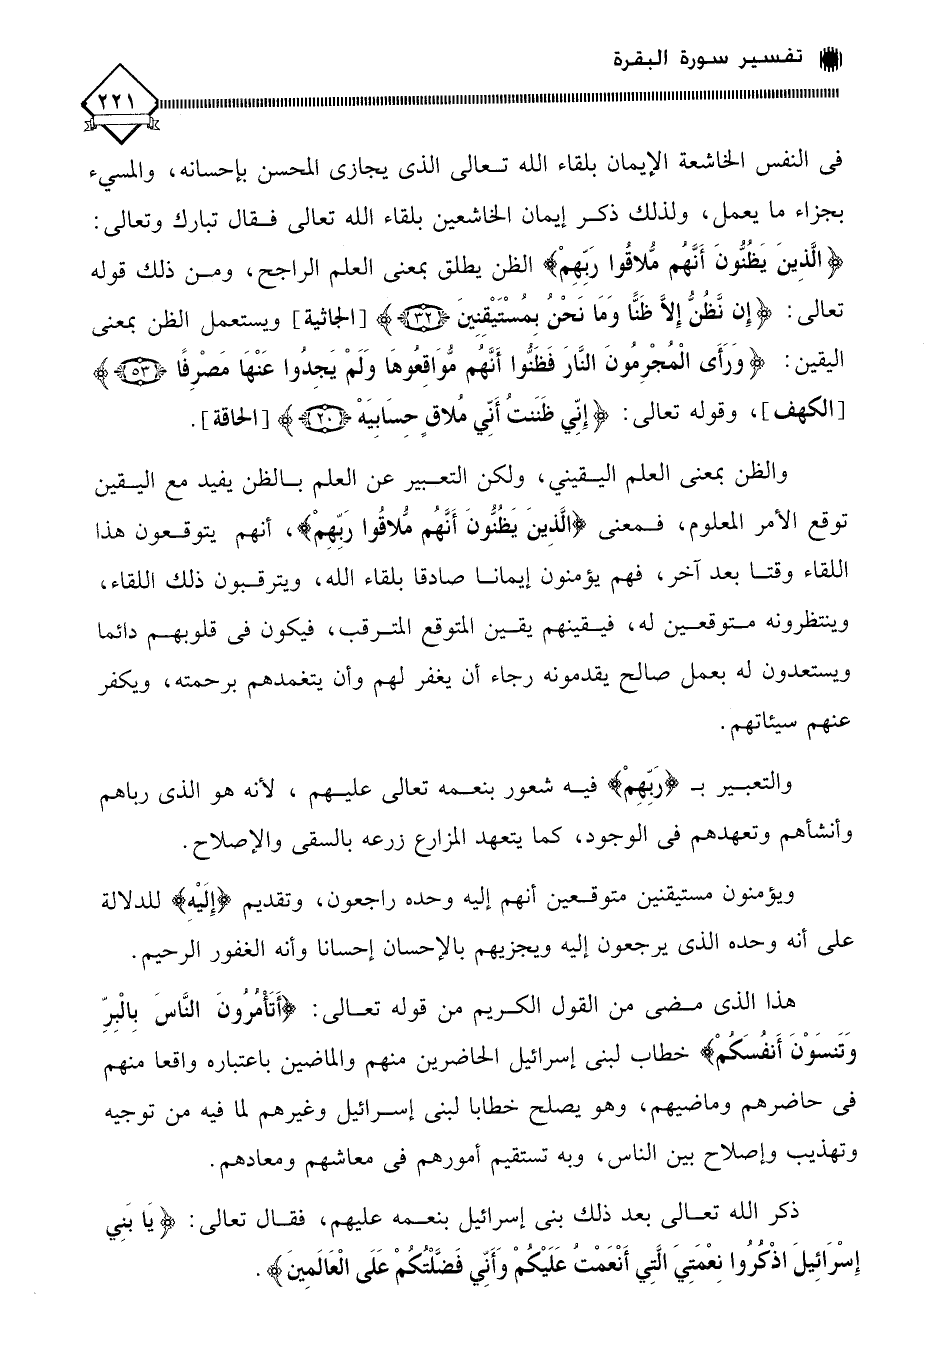 تفسير سورة البقرة
٢٢١
فى النفس الخاشعة الإيمان بلقاء الله تعالى الذى يجازى المحسن بإحسانه، والمسيء
بجزاء ما يعمل، ولذلك ذكر إيمان الخاشعين بلقاء الله تعالى فقال تبارك وتعالى:
﴿الَّذِينَ يَظُنُّونَ أَنَّهُم مُّلاقُوا رَبِّهِمْ﴾ الظن يطلق بمعنى العلم الراجح، ومن ذلك قوله
تعالى: ﴿إِن نَّظُنُّ إِلاَّ ظَنًّا وَمَا نَحْنُ بِمُسْتَيْقِنِينَ ﴿٣٢﴾﴾ [الجاثية] ويستعمل الظن بمعنى
اليقين: ﴿وَرَأَى الْمُجْرِمُونَ النَّارَ فَظَنُّوا أَنَّهُم مُّوَاقِعُوهَا وَلَمْ يَجِدُوا عَنْهَا مَصْرِفًا ﴿٥٣﴾﴾
[الكهف]، وقوله تعالى: ﴿إِنِّي ظَنَنتُ أَنِّي مُلاقٍ حِسَابِيَهْ ﴿٢٠﴾﴾ [الحاقة].
والظن بمعنى العلم اليقيني، ولكن التعبير عن العلم بالظن يفيد مع اليقين
توقع الأمر المعلوم، فمعنى ﴿الَّذِينَ يَظُنُّونَ أَنَّهُم مُّلاقُوا رَبِّهِمْ﴾، أنهم يتوقعون هذا
اللقاء وقتا بعد آخر، فهم يؤمنون إيمانا صادقا بلقاء الله، ويترقبون ذلك اللقاء،
وينتظرونه متوقعين له، فيقينهم يقين المتوقع المترقب، فيكون فى قلوبهم دائما
ويستعدون له بعمل صالح يقدمونه رجاء أن يغفر لهم وأن يتغمدهم برحمته، ويكفر
عنهم سيئاتهم.
والتعبير بـ ﴿رَبِّهِمْ﴾ فيه شعور بنعمه تعالى عليهم ، لأنه هو الذى رباهم
وأنشأهم وتعهدهم فى الوجود، كما يتعهد المزارع زرعه بالسقى والإصلاح.
ويؤمنون مستيقنين متوقعين أنهم إليه وحده راجعون، وتقديم ﴿إِلَيْهِ﴾ للدلالة
على أنه وحده الذى يرجعون إليه ويجزيهم بالإحسان إحسانا وأنه الغفور الرحيم.
هذا الذى مضى من القول الكريم من قوله تعالى: ﴿أَتَأْمُرُونَ النَّاسَ بِالْبِرِّ
وَتَنسَوْنَ أَنفُسَكُمْ﴾ خطاب لبنى إسرائيل الحاضرين منهم والماضين باعتباره واقعا منهم
فى حاضرهم وماضيهم، وهو يصلح خطابا لبنى إسرائيل وغيرهم لما فيه من توجيه
وتهذيب وإصلاح بين الناس، وبه تستقيم أمورهم فى معاشهم ومعادهم.
ذكر الله تعالى بعد ذلك بنى إسرائيل بنعمه عليهم، فقال تعالى: ﴿يَا بَنِي
إِسْرَائِيلَ اذْكُرُوا نِعْمَتِيَ الَّتِي أَنْعَمْتُ عَلَيْكُمْ وَأَنِّي فَضَّلْتُكُمْ عَلَى الْعَالَمِينَ﴾.